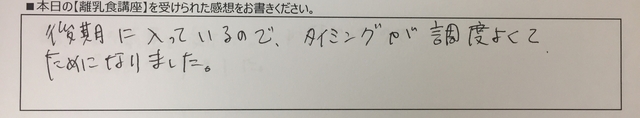 ■本日の【離乳食講座】を受けられた感想をお書きください。
後期に入っているので、タイミングが調度よくて
ためになりました。